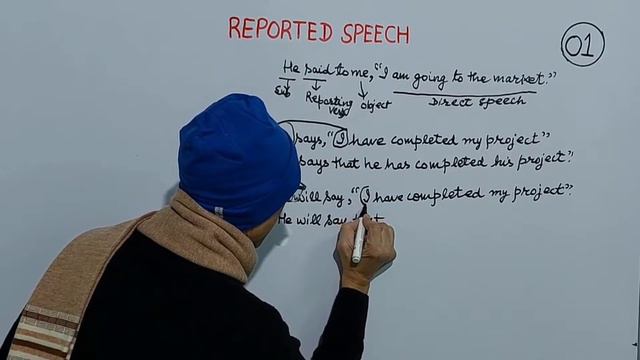 REPORTED SPEECH
01
He said to me, "I am going to the market."
Sub Reporting verb object Direct speech
says, "I have completed my project"
says that he has completed his project."
will say, "I have completed my project".
He will say